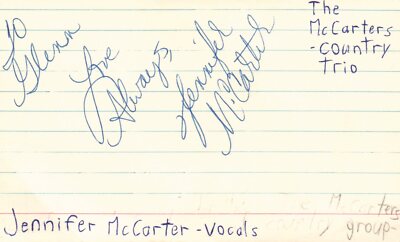 To
Glenn
Love
Always,
Jennifer
McCarter
The
McCarters
-country
Trio
McCarters
country group-
Jennifer McCarter -Vocals